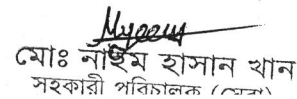 মোঃ নাইম হাসান খান
সহকারী পরিচালক (সেবা)